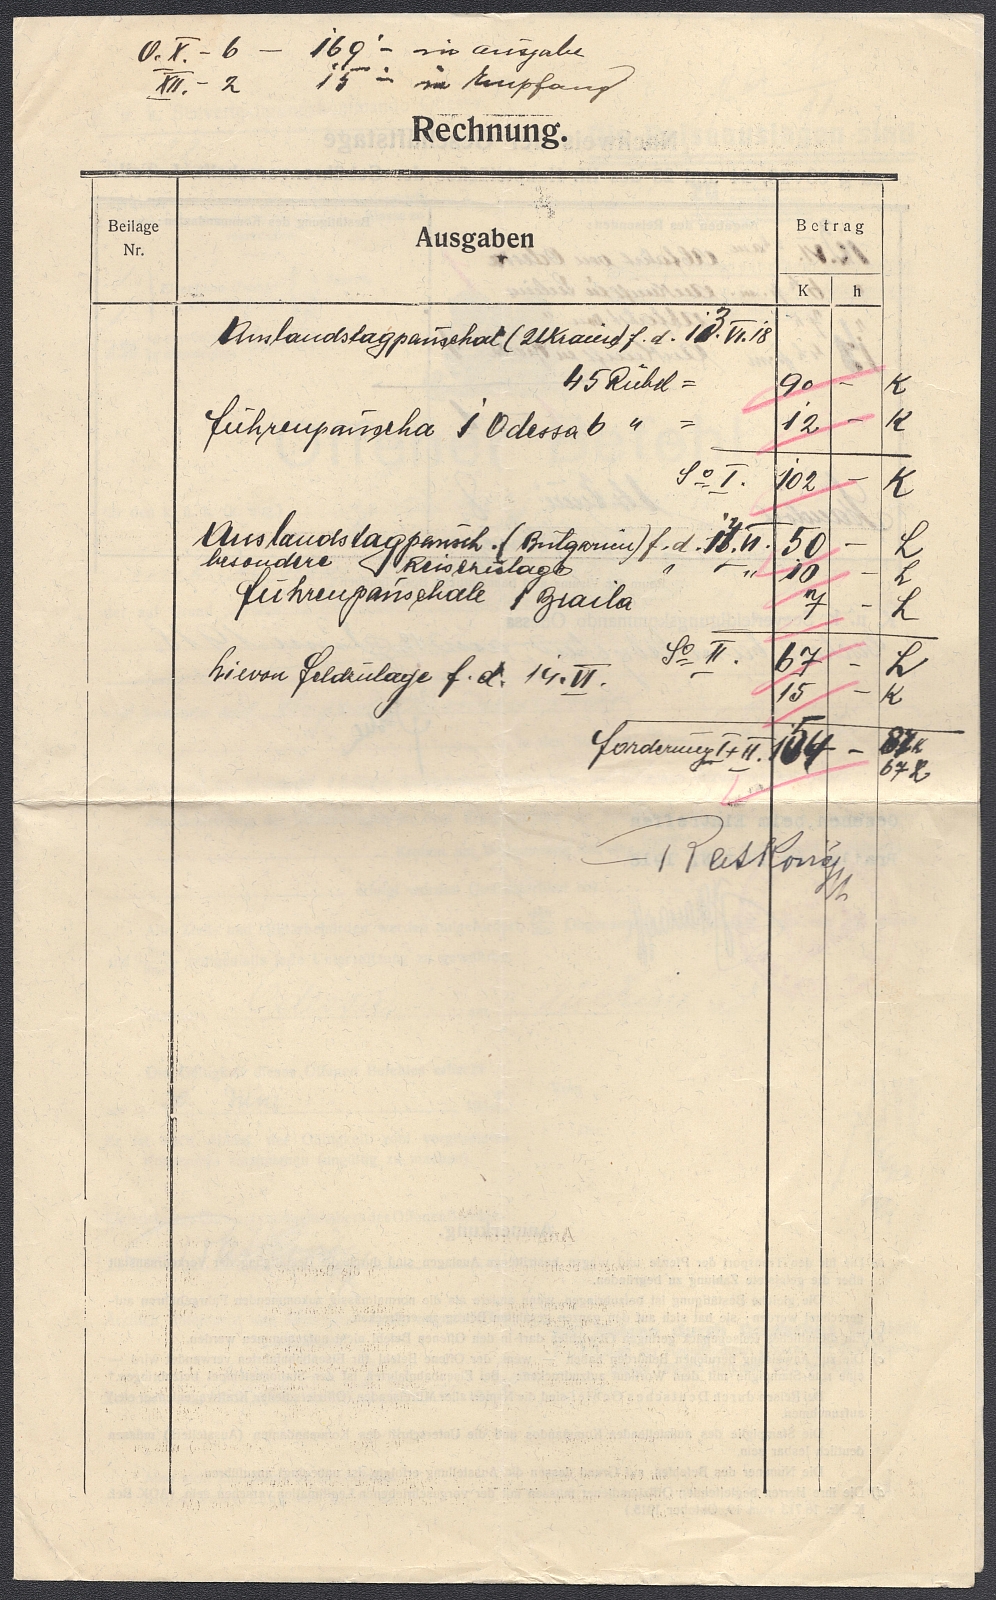 O.X. - 6 - 169 - in ausgabe
XII. - 2 15 - in Empfang
Rechnung.
Beilage
Nr.
Ausgaben
Betrag
K h
Auslandstagpauschal (Ukraine) f. d. 13. VI. 18
45 Rubel = 90 - K
Fuhrenpauscha i Odessa 6 " = 12 - K
So I. 102 - K
Auslandstagpausch. (Bulgarien) f. d. 14. VI. 50 - L
besondere Reisezulage " " " 10 - L
Fuhrenpauschale i Braila 7 - L
So II. 67 - L
hievon Feldzulage f. d. 14. VI. 15 - K
Forderung I + II. 154 - 87 K
67 L